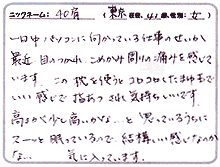 ニックネーム: 40肩 (東京在住、41歳、性別: 女)
一日中パソコンに向かっている仕事のせいか
最近、目のつかれ、こめかみ、肩の痛みを感じて
います。この枕を使うとコロコロした
いい感じで指あつされ気持ちいいです。
高さが少し高いかな…と思っているうちに
スーーと眠っているので、結構いい感じなのか
な…。気に入っています。